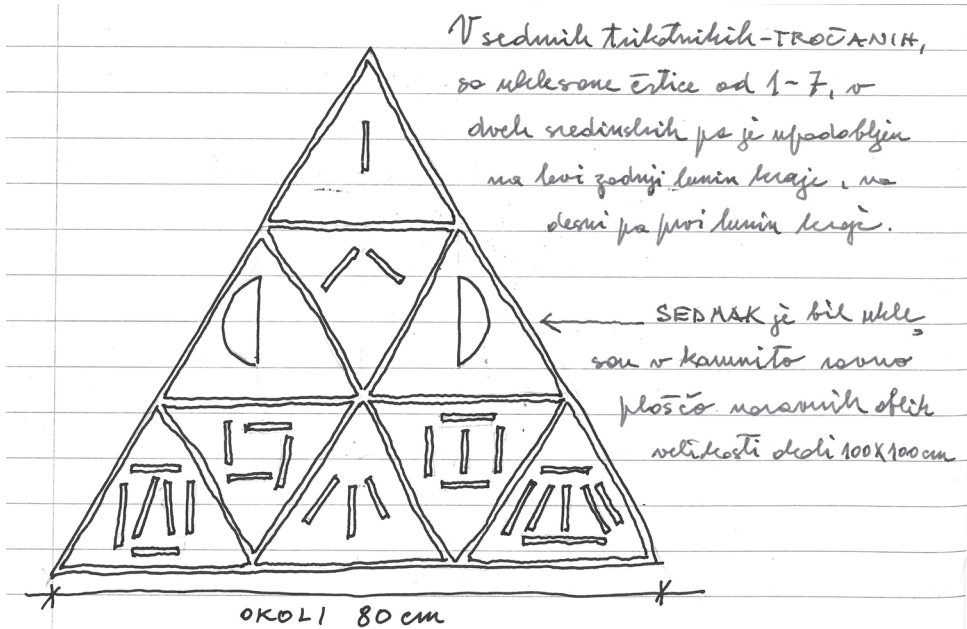 V sedmih trikotnikih-TROČANIH,
so vklesane črtice od 1-7, v
dveh sredinskih pa je upodobljen
na levi zadnji lunin krajc, na
desni pa prvi lunin krajc.
SEDMAK je bil vkle,
san v kamnito ravno
ploščo naravnih oblik
velikosti okoli 100X100cm
OKOLI 80cm